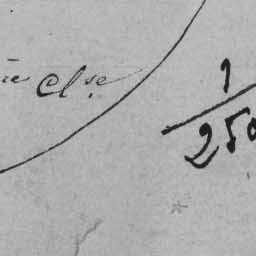 ue Cl^se.
1/250